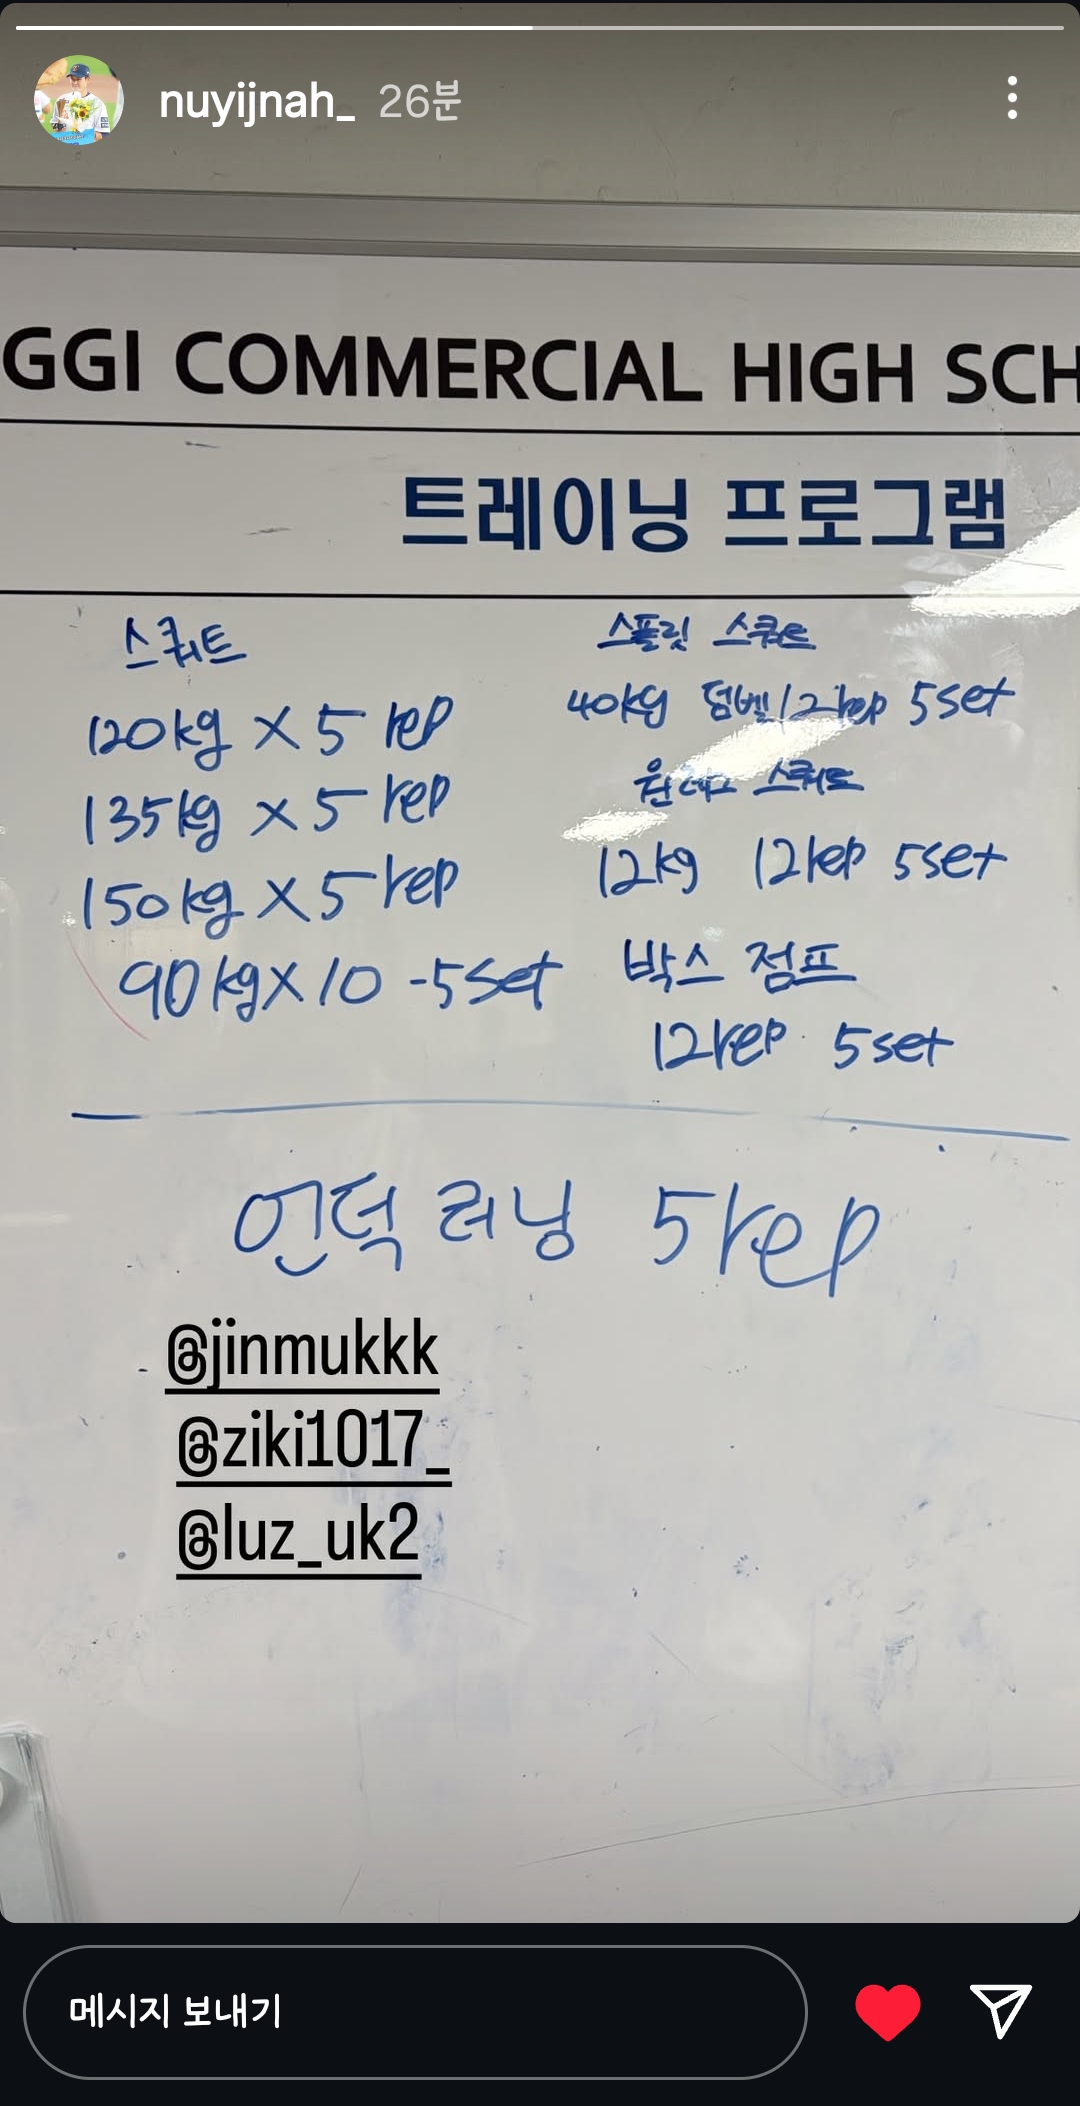 nuyijnah_ 26분
GGI COMMERCIAL HIGH SCH
트레이닝 프로그램
스쿼트
120kg X 5 rep
135kg X 5 rep
150kg X 5 rep
90kg X 10 - 5set
스플릿 스쿼트
40kg 덤벨 12rep 5set
원레그 스쿼트
12kg 12rep 5set
박스 점프
12rep 5set
언덕 러닝 5rep
@jinmukkk
@ziki1017_
@luz_uk2
메시지 보내기